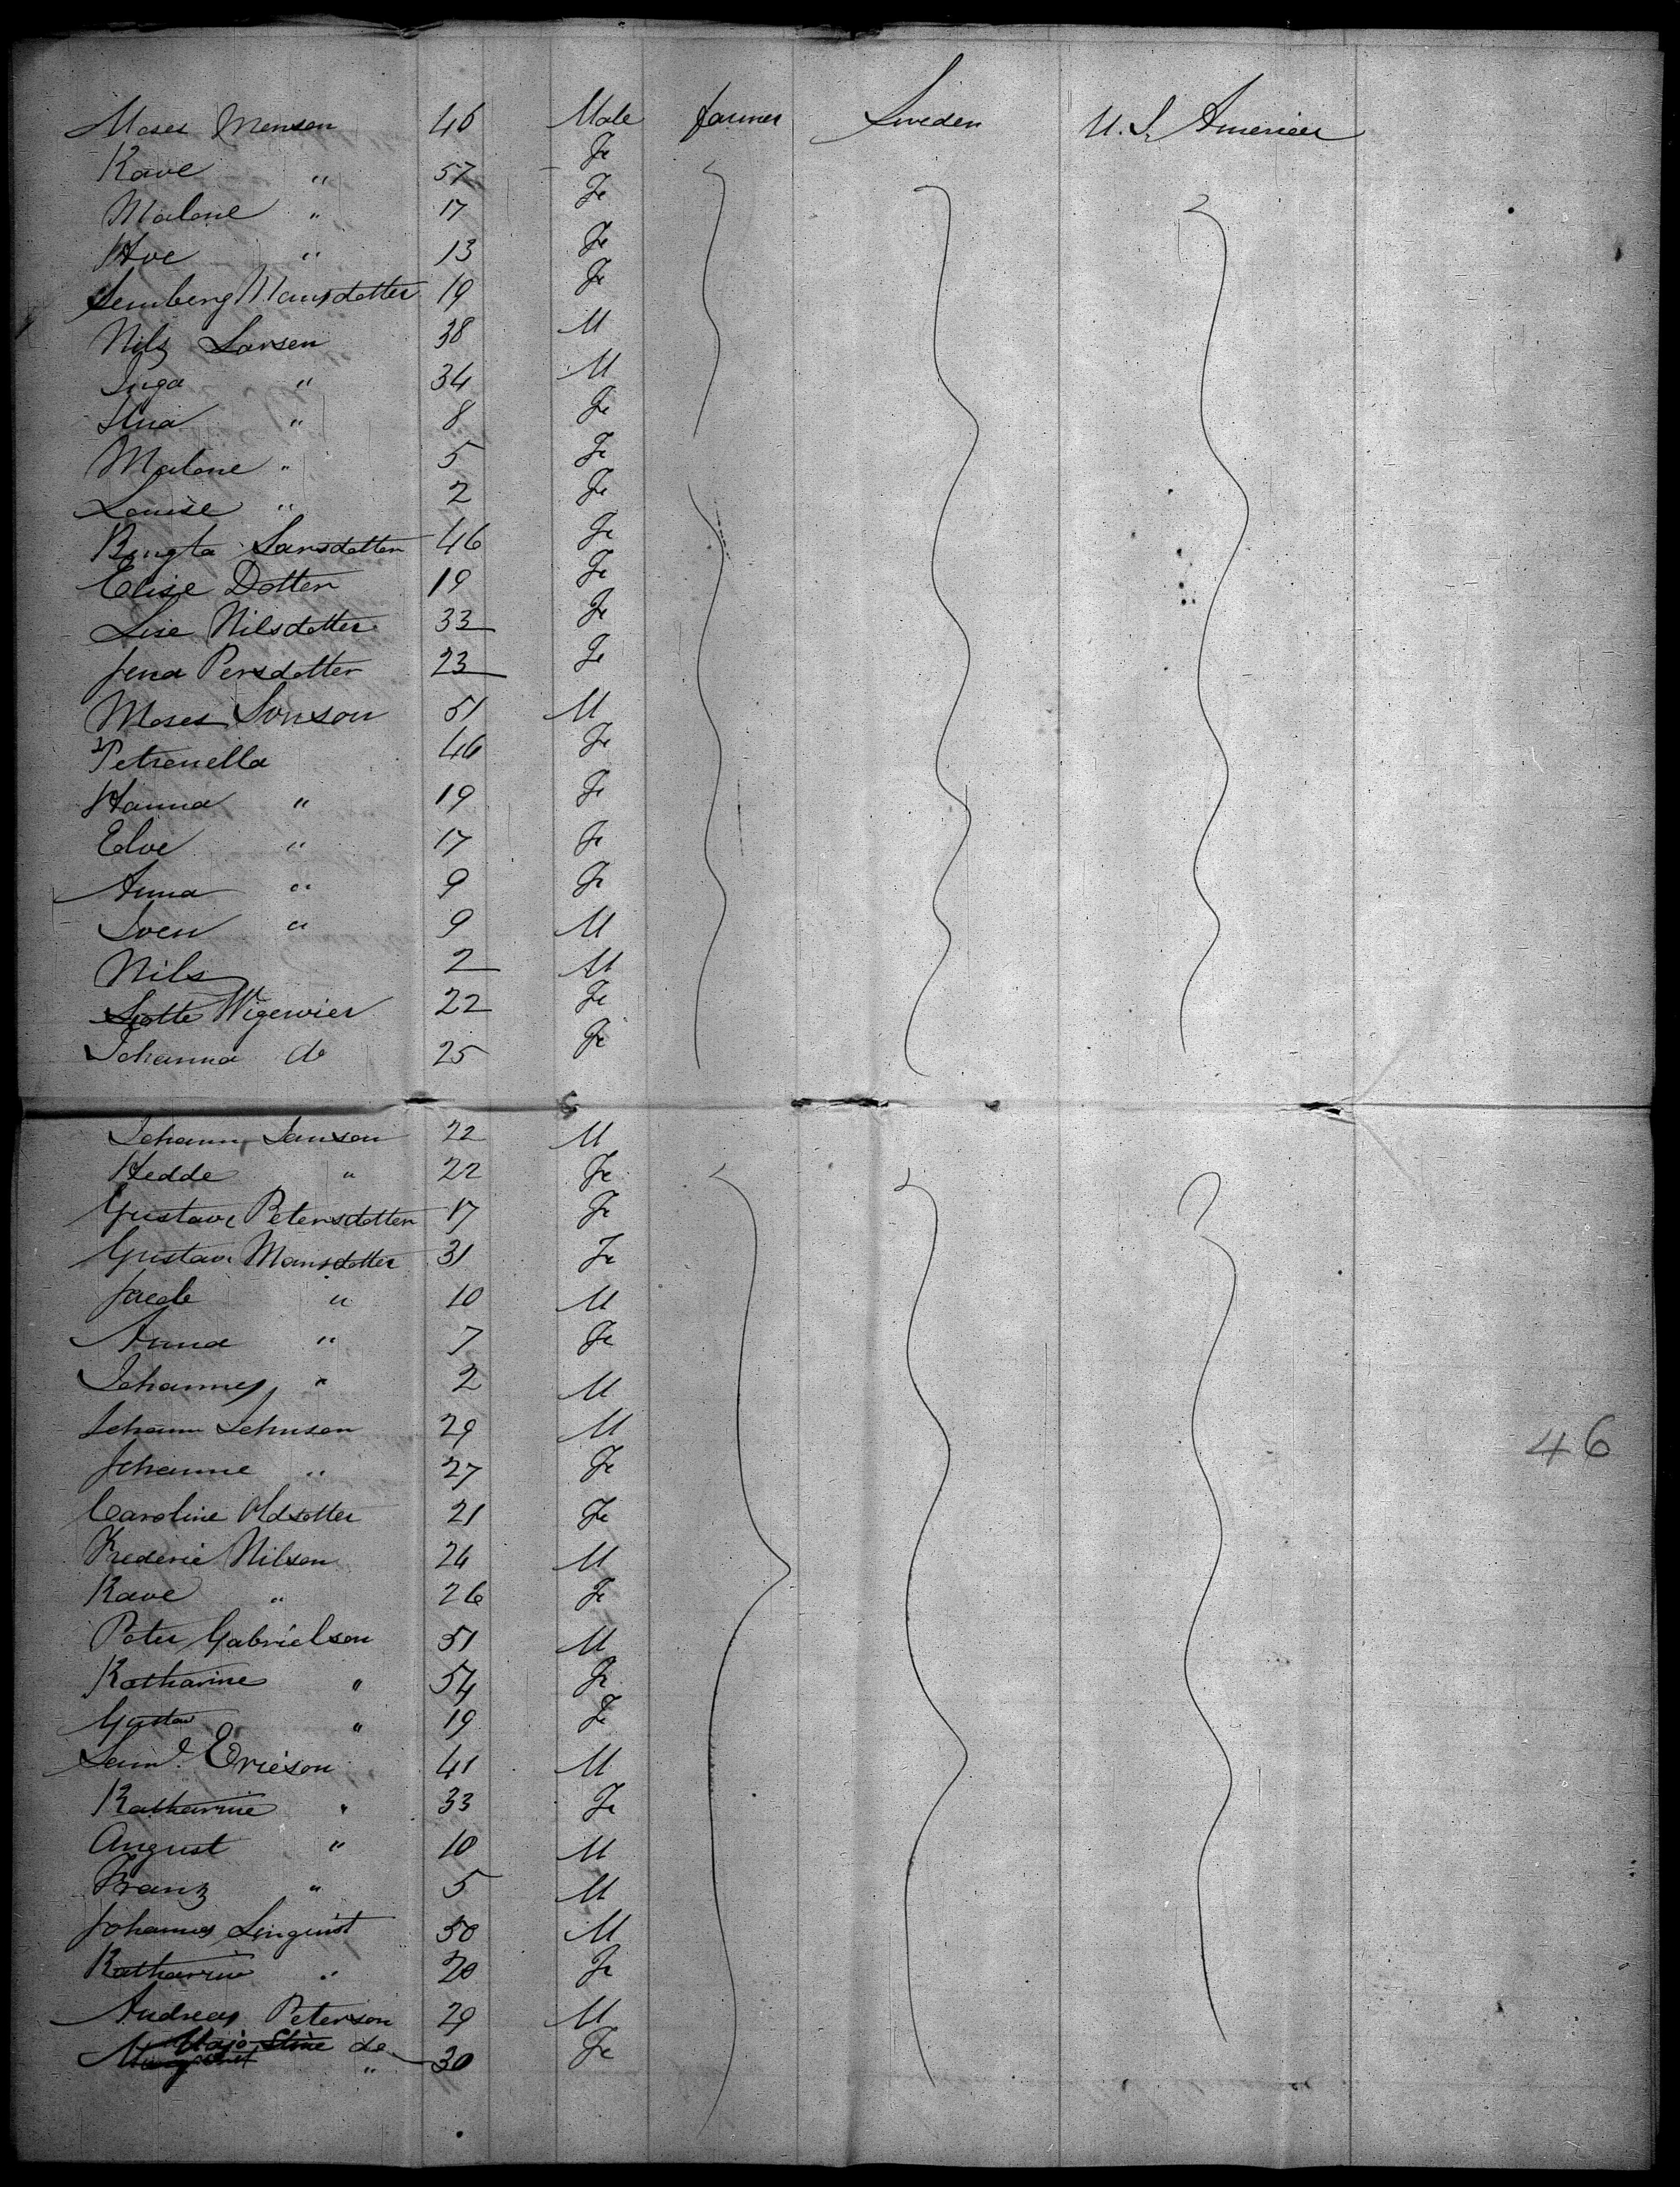 Moses Monson 46 Male farmer Sweden U. S. America
Kave " 57 Fe
Malene " 17 Fe
Hve " 13 Fe
Mansdotter 19 Fe
Nils Larsen 38 M
Inga " 34 M
Stina " 8 Fe
Malene " 5 Fe
Louise " 2 Fe
Bengta Larsdotter 46 Fe
Elise Dotter 19 Fe
Lise Nilsdotter 33 Fe
Jena Persdotter 23 Fe
Moses Sonson 51 M
Petrenella 46 Fe
Hanna " 19 Fe
Elve " 17 Fe
Anna " 9 Fe
Sven " 9 M
Nils 2 M
Lotte Wigewier 22 Fe
Johanna do 25 Fe
Johann Janson 22 M
Hedde " 22 Fe
Gustave Petersdotter 17 Fe
Gustava Mansdotter 31 Fe
Jacob " 10 M
Anna " 7 Fe
Johannes " 2 M
Johann Johnson 29 M
Johanne " 27 Fe
Caroline Oldsotter 21 Fe
Frederic Nilson 24 M
Kave " 26 Fe
Peter Gabrielson 51 M
Katharine " 54 Fe
Gustav " 19 Fe
Saml. Ericson 41 M
Katharine " 33 Fe
August " 10 M
Franz " 5 M
Johannes Linquist 50 M
Katharine " 20 Fe
Andreas Peterson 29 M
Majo Stine do
Margaret " 30 Fe
46